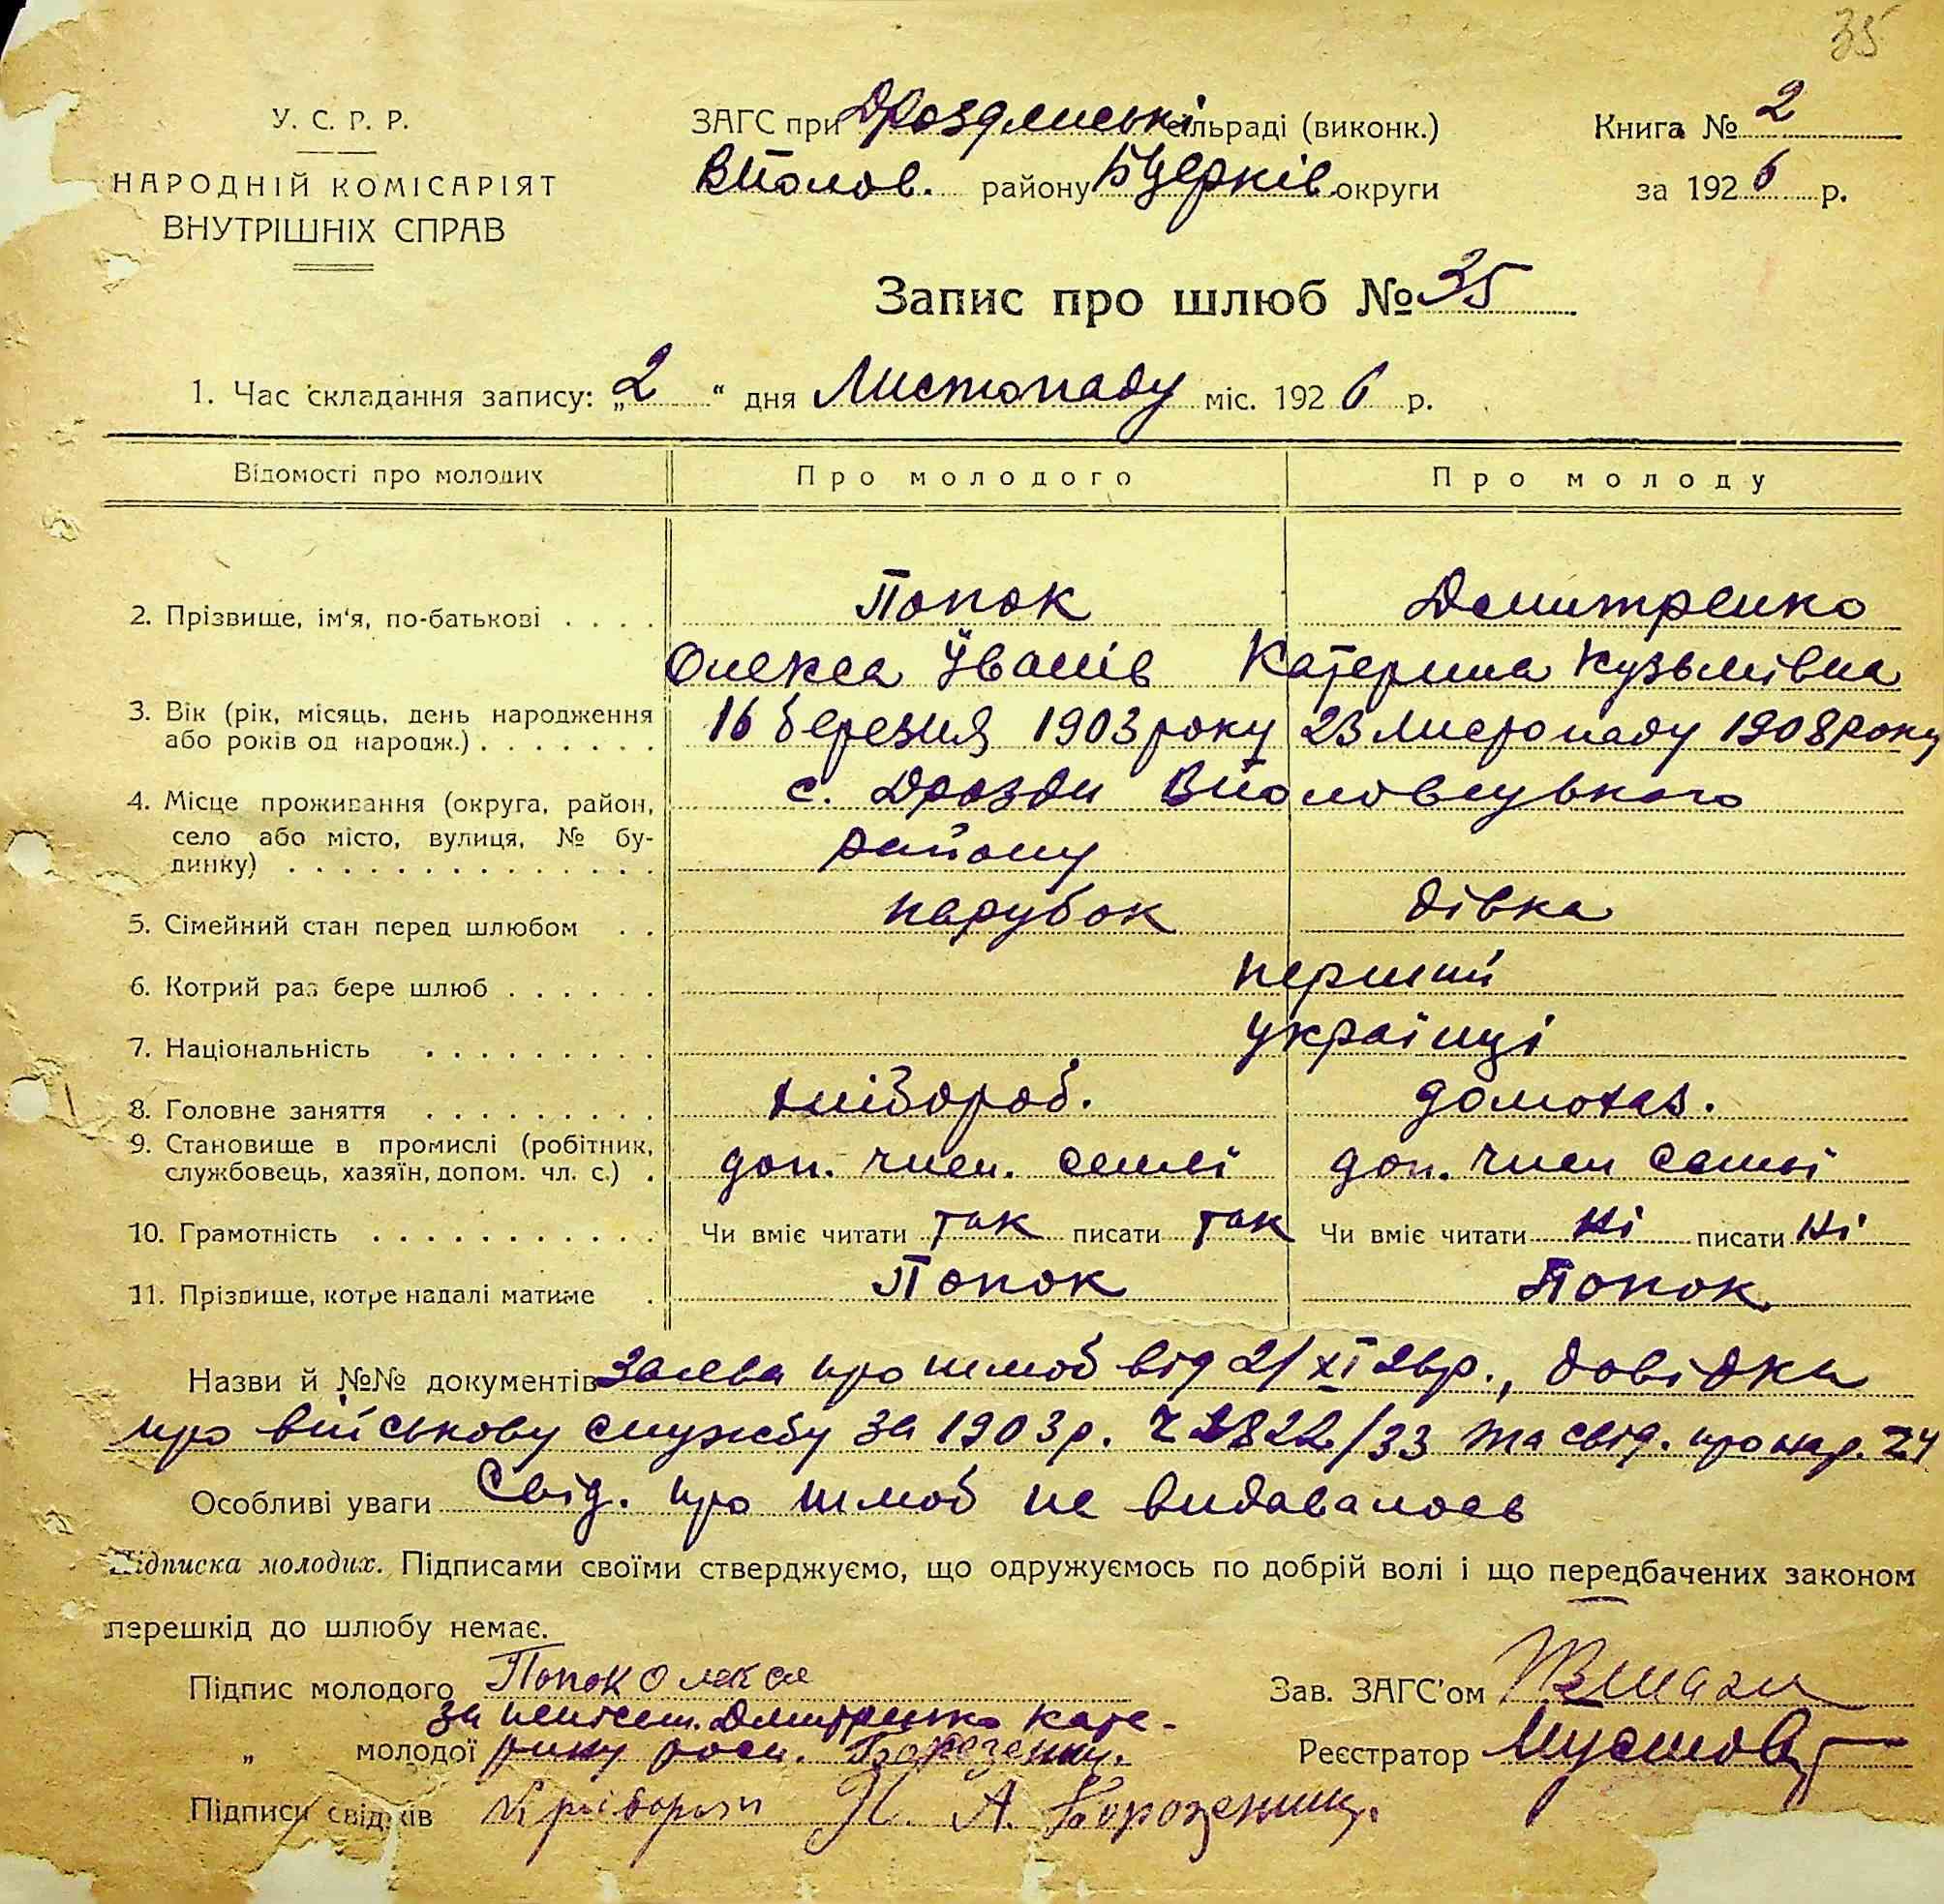 35
У. С. Р. Р.
НАРОДНІЙ КОМІСАРІЯТ
ВНУТРІШНІХ СПРАВ
ЗАГС при Дроздянській сільраді (виконк.)
ВПолов. району БЦерків. округи
Книга № 2
за 1926 р.
Запис про шлюб № 35
1. Час складання запису: „2“ дня Листопаду міс. 1926 р.
Відомості про молодих Про молодого Про молоду
2. Прізвище, ім‘я, по-батькові . . . . Попок Дмитренко
Олекса Іванів Катерина Кузьмівна
3. Вік (рік, місяць, день народження 16 березня 1903 року 23 листопаду 1908 року
або років од народж.) . . . . . . .
4. Місце проживання (округа, район, с. Дрозди ВПоловецького
село або місто, вулиця, № бу- району
динку) . . . . . . . . . . . . . .
5. Сімейний стан перед шлюбом . . парубок дівка
6. Котрий раз бере шлюб . . . . . . перший
7. Національність . . . . . . . . . українці
8. Головне заняття . . . . . . . . . хлібороб. домохаз.
9. Становище в промислі (робітник,
службовець, хазяїн, допом. чл. с.) . доп. член. семьї доп. член семьї
10. Грамотність . . . . . . . . . . . Чи вміє читати так писати так Чи вміє читати ні писати ні
11. Прізвище, котре надалі матиме . Попок Попок
Назви й №№ документів Заява про шлюб від 2/XI 26р., довідка
про військову службу за 1903р. 2822/33 та свід. про нар. 24
Особливі уваги Свід. про шлюб не видавалось
Підписка молодих. Підписами своїми стверджуємо, що одружуємось по добрій волі і що передбачених законом
перешкід до шлюбу немає.
Підпис молодого Попок Олекса
за неписьм. Дмитренко Кате-
„ молодої рину росп.
Підписи свідків Н. А.
Зав. ЗАГС’ом
Реєстратор